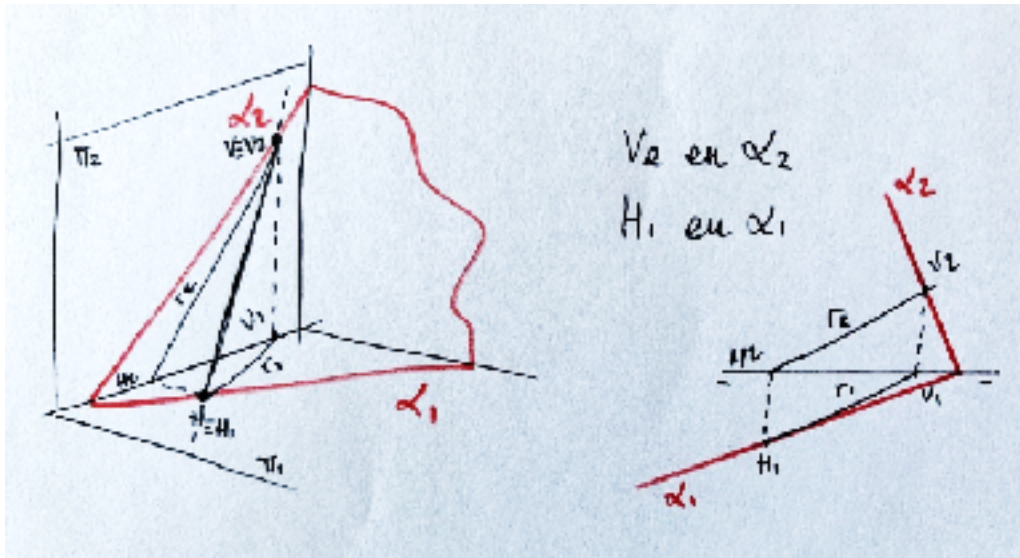 π2
α2
V≡V2
r2
V1
H2
r1
H≡H1
α1
π1
V2 en α2
H1 en α1
α2
V2
r2
H2
r1
V1
H1
α1